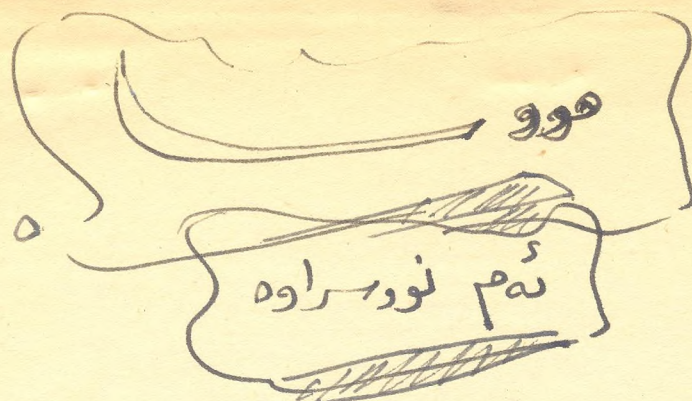 هوو
ئەم نووسراوە